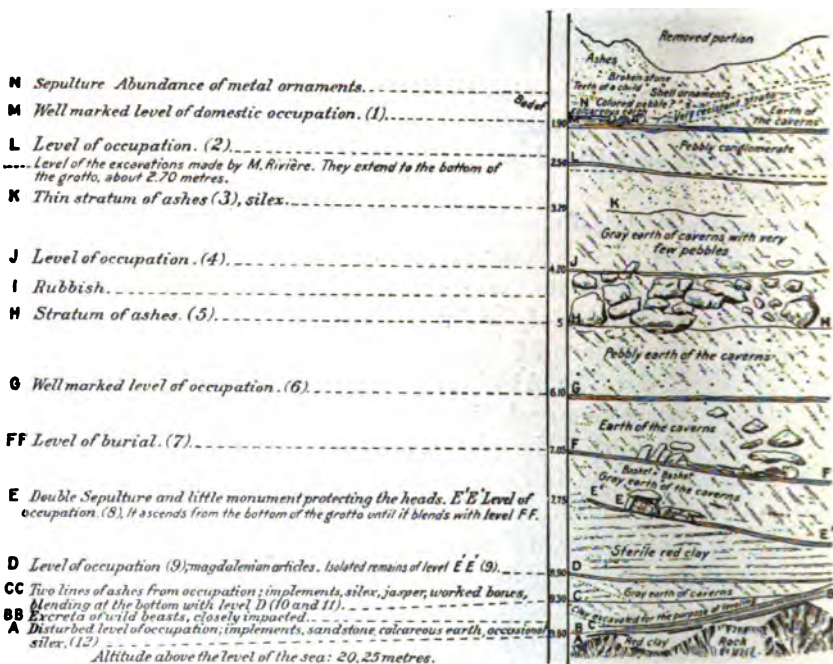 N Sepulture Abundance of metal ornaments.
M Well marked level of domestic occupation. (1)
L Level of occupation. (2)
Level of the excavations made by M. Rivière. They extend to the bottom of
the grotto, about 2.70 metres.
K Thin stratum of ashes (3), silex.
J Level of occupation. (4)
I Rubbish
H Stratum of ashes. (5)
G Well marked level of occupation. (6)
FF Level of burial. (7)
E Double Sepulture and little monument protecting the heads. E'E' Level of
occupation. (8). It ascends from the bottom of the grotto until it blends with level FF.
D Level of occupation (9); magdalenian articles. Isolated remains of level E'E' (9).
CC Two lines of ashes from occupation; implements, silex, jasper, worked bones,
blending at the bottom with level D (10 and 11).
BB Excreta of wild beasts, closely impacted
A Disturbed level of occupation; implements, sandstone, calcareous earth, occasional
silex. (12)
Altitude above the level of the sea: 20,25 metres.
1.90
2.50
3.20
4.20
5
6.10
7.05
7.75
8.90
Removed portion
Ashes
Broken stone
Teeth of a child
Shell ornaments
N Colored pebble?
Very resistant strata
Earth of
the caverns
M
L
Pebbly conglomerate
K
Gray earth of caverns with very
few pebbles
J
H
H
Pebbly earth of the caverns
G
Earth of the caverns
F
F
Basket Basket
Gray earth of the caverns
E'
E
E'
Sterile red clay
D
C
Gray earth of caverns
Clay excavated for the purpose of
B
A
Red clay
Rock